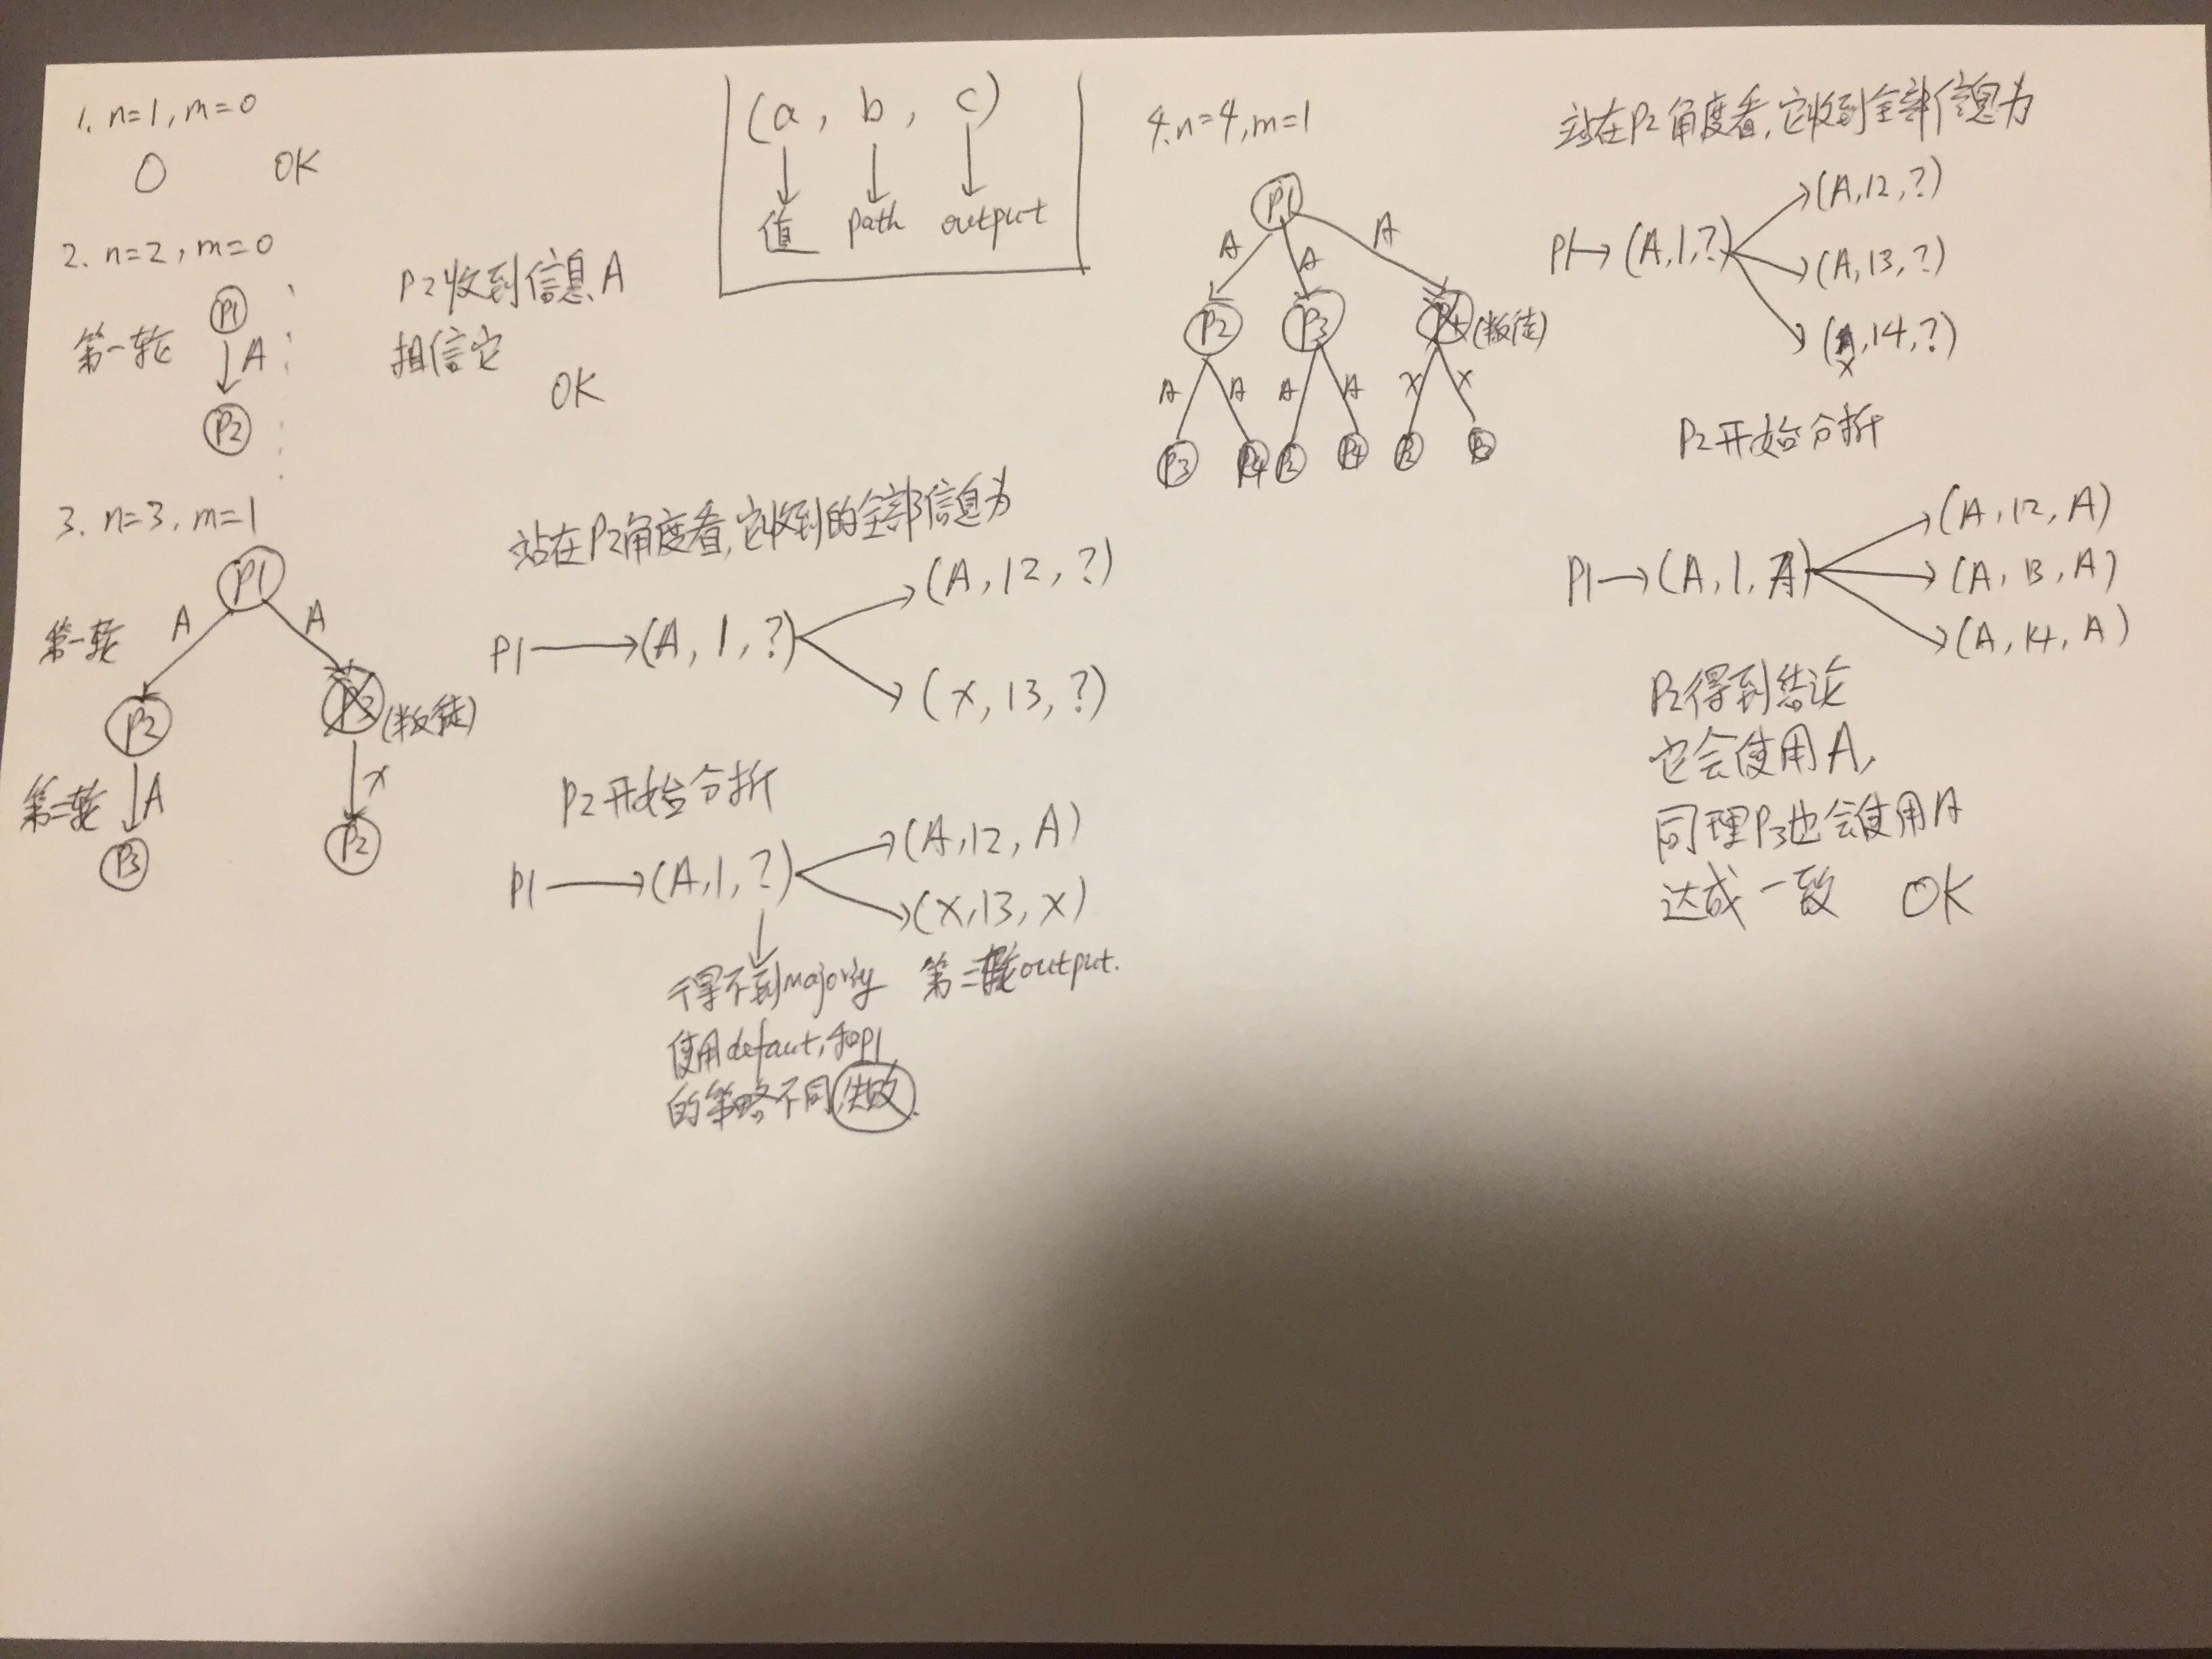 1. n=1, m=0
O OK
2. n=2, m=0
第一轮
P1
A
P2
P2收到信息A
相信它
OK
(a, b, c)
值 path output
3. n=3, m=1
P1
第一轮 A A
P2 P3 (叛徒)
第二轮 A x
P3 P2
站在P2角度看,它收到的全部信息为
P1 (A, 1, ?)
(A, 12, ?)
(x, 13, ?)
P2开始分析
P1 (A, 1, ?)
(A, 12, A)
(x, 13, x)
第二轮output.
得不到majority
使用defaut, 和P1
的策略不同 失败.
4. n=4, m=1
P1
A A A
P2 P3 P4 (叛徒)
A A A A x x
P3 P4 P2 P4 P2 P3
站在P2角度看,它收到全部信息为
P1 (A, 1, ?)
(A, 12, ?)
(A, 13, ?)
(x, 14, ?)
P2开始分析
P1 (A, 1, A)
(A, 12, A)
(A, 13, A)
(A, 14, A)
P2得到结论
也会使用A,
同理P3也会使用A
达成一致 OK